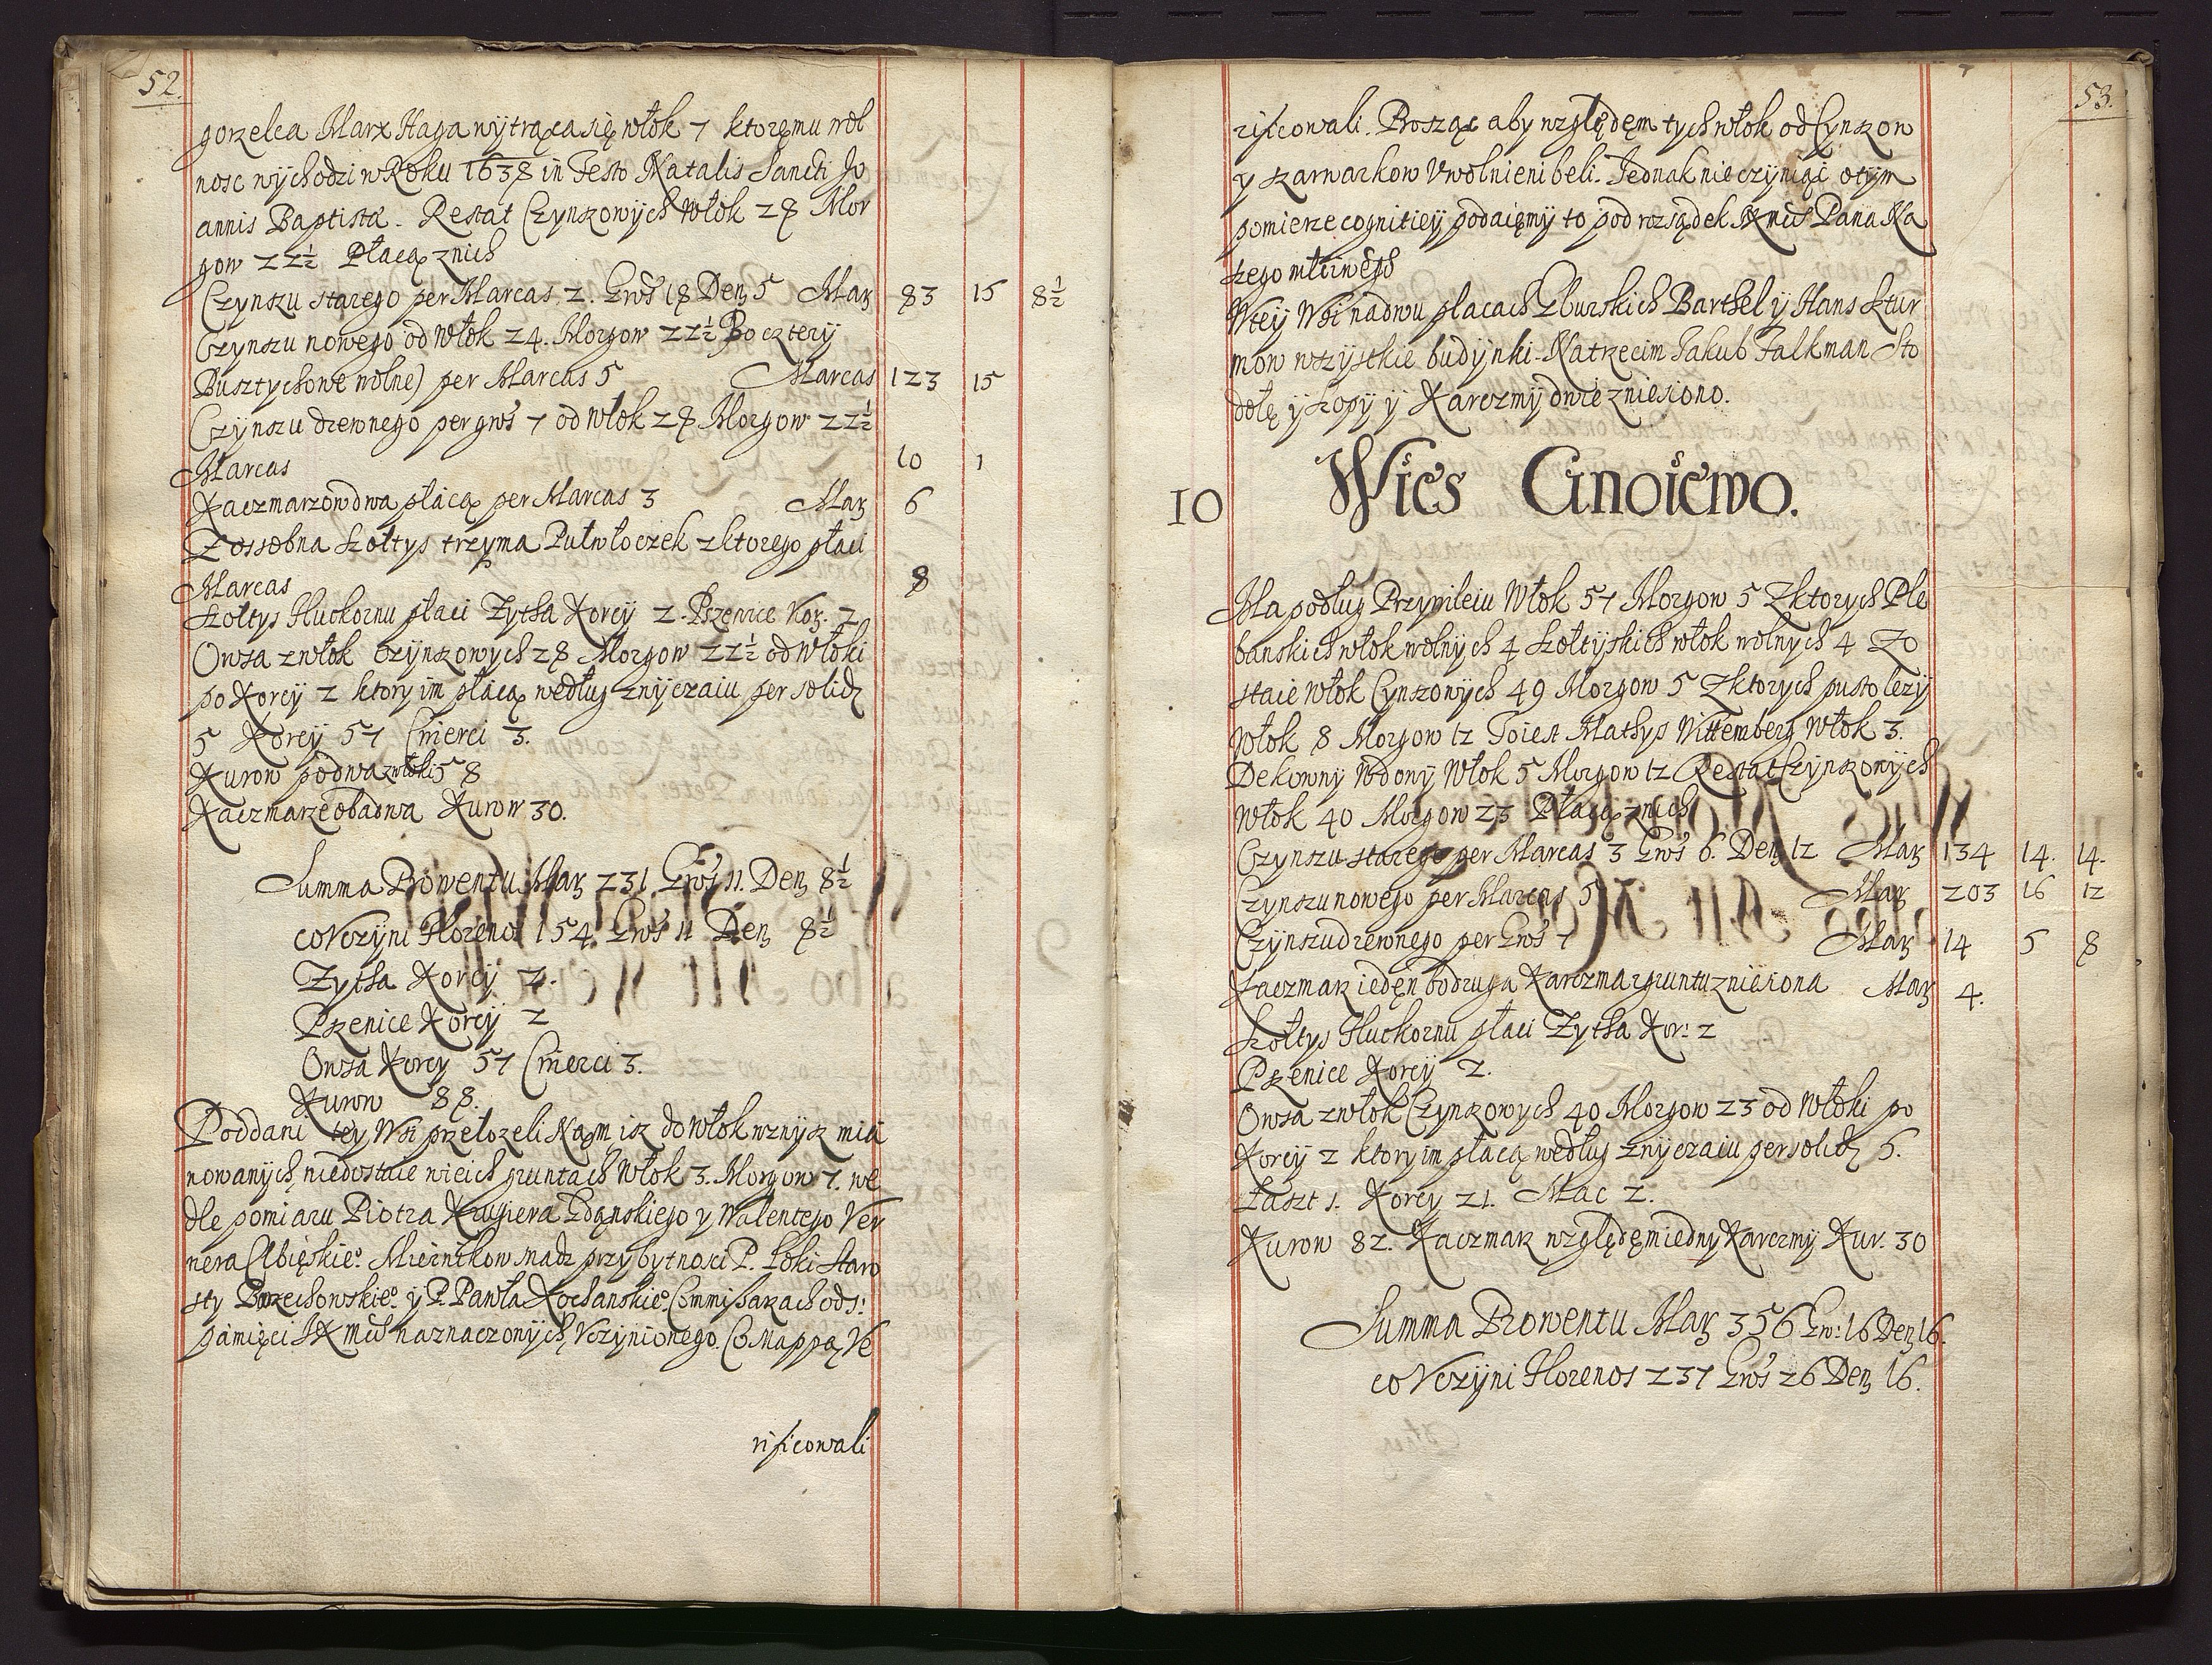 52.
gorzelca Marx Haga wytrąca się włok 7 ktoremu wol
nosc wychodzi w Roku 1638 in Festo Natalis Sancti Jo
annis Baptistæ. Restat Czynszowych Włok 28 Mor
gow 22½ Płacą z nich
Czynszu starego per Marcas 2. Gros 18 Den 5 Mar 83 15 8½
Czynszu nowego od Włok 24. Morgow 22½ Bo cztery
Busztychowe wolne) per Marcas 5 Marcas 123 15
Czynszu drewnego per gros 7 od włok 28 Morgow 22½
Marcas 10 1
Kaczmarzow dwa płacą per Marcas 3 Mar 6
Z ossobna Szołtys trzyma Pułwłoczek z ktorego płaci
Marcas 8
Szołtys Hutkornu płaci Zytha Korcy 2. Pszenice Kor. 2
Owsa z włok Czynszowych 28 Morgow 22½ od Włoki
po Korcy 2 ktory im płacą według zwyczaiu per solid
5 Korcy 57 Cwierci 3.
Kurow po dwa z włoki 58
Kaczmarze obadwa Kurow 30.
Summa Prowentu Mar 231 Gros 11. Den 8½
co Vczyni Florenos 154. Gros 11 Den 8½
Zytha Korcy 2.
Pszenice Korcy 2
Owsa Korcy 57 Cwierci 3.
Kurow 88.
Poddani tey Wsi przełozeli Nąm isz do Włok wzwysz mia
nowanych, niedostaie w ich gruntach Włok 3. Morgow 7. we
dle pomiaru Piotra Krugiera Gdąnskiego y Walentego Ver
nera Elbięskieo Miernikow nadz przy bytnosci P. Łoki Staro
sty Borzechowskieo y P. Pawła Kochanskieo Commissarzach ods:
pamięci JK mci naznaczonych, Vczynionego. Co Mappą Ve
rificowali
53.
rificowali. Prosząc aby względem tych włok od Czynszow
y szarwarkow Vwolnieni beli. Jednak nie czyniąc o tym
pomierze cognitiey podaięmy to pod rozsądek JKmci Pana Na
szego mściwego
W tey Wsi na dwu placach Gburskich Barthel y Hans Sztur
mow wszystkie budynki. Na trzecim Jakub Falkman Sto
dołę y szopy y Karczmy dwie zniesiono.
10 Wies Gnoiewo.
Ma podług Przywileiu Włok 57 Morgow 5 Z ktorych Ple
banskich włok wolnych 4 Szołtyskich włok wolnych 4 Zo
staie Włok Czynszowych 49 Morgow 5 Z ktorych pusto lezy
Włok 8 Morgow 12 To iest Mathys Wittemberg Włok 3.
Dekowny Wdowy Włok 5 Morgow 12 Restat Czynszowych
Włok 40 Morgow 23 Płacą z nich
Czynszu starego per Marcas 3 Gros 6. Den 12 Mar 134 14. 14.
Czynszu nowego per Marcas 5 Mar 203 16 12
Czynszu drewnego per Gros 7 Mar 14 5 8
Kaczmarz iedęn bo druga Karczma z gruntu zniesiona Mar 4.
Szołtys Hutkornu płaci Zytha Kor: 2
Pszenice Korcy 2.
Owsa z włok Czynszowych 40 Morgow 23 od Włoki po
Korcy 2 ktory im płacą według zwyczaiu per solid 5.
Łaszt 1. Korcy 21. Mac 2.
Kurow 82. Kaczmarz względęm iedny Karczmy Kur. 30
Summa Prowentu Mar 356 Gro: 16 Den 16.
co Vczyni Florenos 237 Gros 26 Den 16.